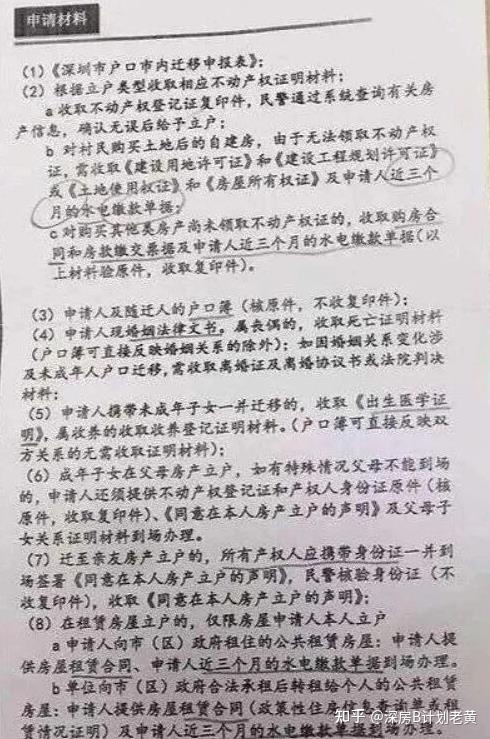 申请材料
(1)《深圳市户口市内迁移申报表》;
(2) 根据立户类型收取相应不动产权证明材料:
a 收取不动产权登记证复印件,民警通过系统查询有关房
产信息,确认无误后给予立户;
b 对村民购买土地后的自建房,由于无法领取不动产权
证,需收取《建设用地许可证》和《建设工程规划许可证》
或《土地使用权证》和《房屋所有权证》及申请人近三个
月的水电缴款单据;
c 对购买其他类房产尚未领取不动产权证的,收取购房合
同和房款缴交票据及申请人近三个月的水电缴款单据(以
上材料验原件,收取复印件)。
(3) 申请人及随迁人的户口簿(核原件,不收复印件);
(4) 申请人现婚姻法律文书。属丧偶的,收取死亡证明材料
(户口簿可直接反映婚姻关系的除外);如因婚姻关系变化涉
及未成年人户口迁移,需收取离婚证及离婚协议书或法院判决
材料;
(5) 申请人携带未成年子女一并迁移的,收取《出生医学证
明》,属收养的收取收养登记证明材料。(户口簿可直接反映双
方关系的无需收取证明材料);
(6) 成年子女在父母房产立户,如有特殊情况父母不能到场
的,申请人还须提供不动产权登记证和产权人身份证原件(核
原件,收取复印件)、《同意在本人房产立户的声明》及父母子
女关系证明材料到场办理。
(7) 迁至亲友房产立户的,所有产权人应携带身份证一并到
场签署《同意在本人房产立户的声明》,民警核验身份证(不
收复印件),收取《同意在本人房产立户的声明》;
(8) 在租赁房屋立户的,仅限房屋申请人本人立户
a 申请人向市(区)政府租住的公共租赁房屋:申请人提
供房屋租赁合同、申请人近三个月的水电缴款单据到场办理。
b 单位向市(区)政府合法承租后转租给个人的公共租赁
房屋:申请人提供房屋租赁合同(政策性住房信息查询单或租
赁情况证明)及申请人近三个月的水电缴款单据到场办理。
知乎 @深房B计划老黄